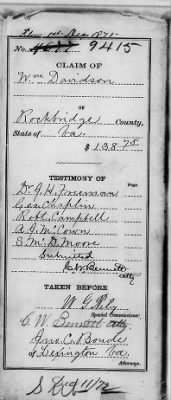 No. 4677 9415
CLAIM OF
Wm Davidson
OF
Rockbridge County,
State of Va.
$ 138.25
TESTIMONY OF
Page
Dr J. H. Freeman
Geo. Chaplin
Robt Campbell
A. J. McCown
E. McD. Moore
Submitted
C. W. Bennett
atty
TAKEN BEFORE
W. G.
Special Commissioner.
C. W. Bennett atty.
Jas. C.
Lexington Va.
Attorneys.